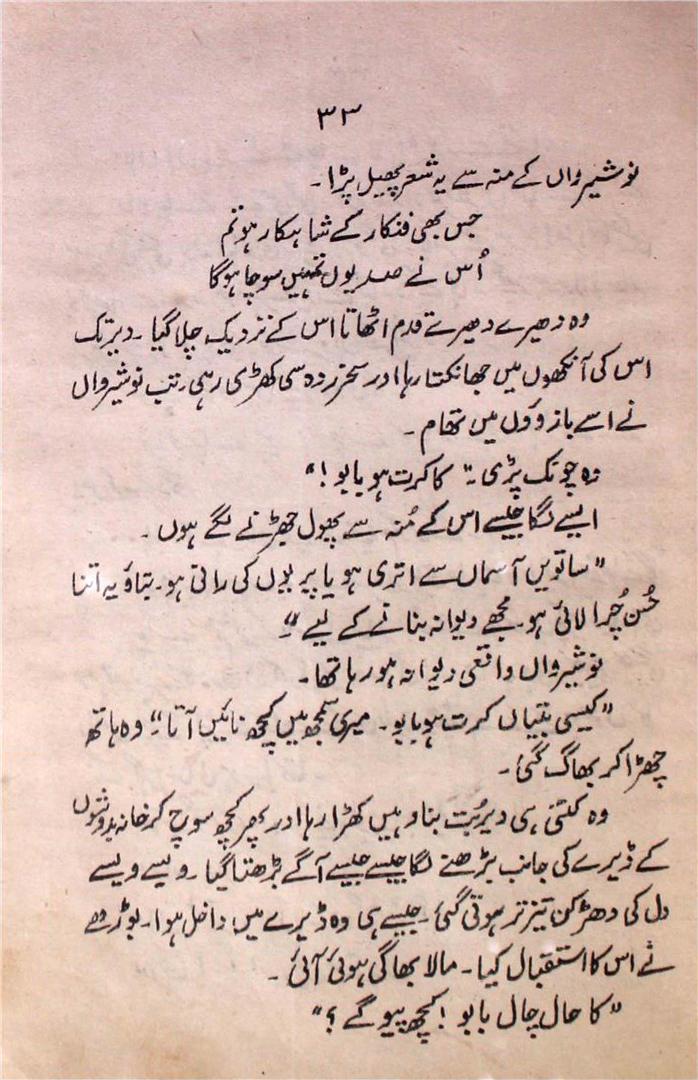 ۳۳
نوشیرواں کے منہ سے یہ شعر پھیل پڑا۔
جس بھی فنکار کے شاہکار ہو تم
اُس نے صدیوں تمہیں سوچا ہوگا
وہ دھیرے دھیرے قدم اٹھاتا اس کے نزدیک چلا گیا۔ دیر تک
اس کی آنکھوں میں جھانکتا رہا اور سحر زدہ سی کھڑی رہی۔ تب نوشیرواں
نے اسے بازوؤں میں تھام۔
وہ چونک پڑی۔ "کا کرت ہو بابو!"
ایسے لگا جیسے اس کے مُنہ سے پھول جھڑنے لگے ہوں۔
"ساتویں آسماں سے اتری ہو یا پریوں کی رانی ہو۔ بتاؤ یہ اتنا
حُسن چُرا لائی ہو۔ مجھے دیوانہ بنانے کے لیے۔"
نوشیرواں واقعی دیوانہ ہو رہا تھا۔
"کیسی بتیاں کرت ہو بابو۔ میری سمجھ میں کچھ نائیں آتا۔" وہ ہاتھ
چھڑا کر بھاگ گئی۔
وہ کتنی ہی دیر بُت بنا وہیں کھڑا رہا اور پھر کچھ سوچ کر خانہ بدوشوں
کے ڈیرے کی جانب بڑھنے لگا جیسے جیسے آگے بڑھتا گیا۔ ویسے ویسے
دل کی دھڑکن تیز تر ہوتی گئی۔ جیسے ہی وہ ڈیرے میں داخل ہوا۔ بوڑھے
نے اس کا استقبال کیا۔ مالا بھاگی ہوئی آئی۔
"کا حال چال بابو! کچھ پیو گے؟"